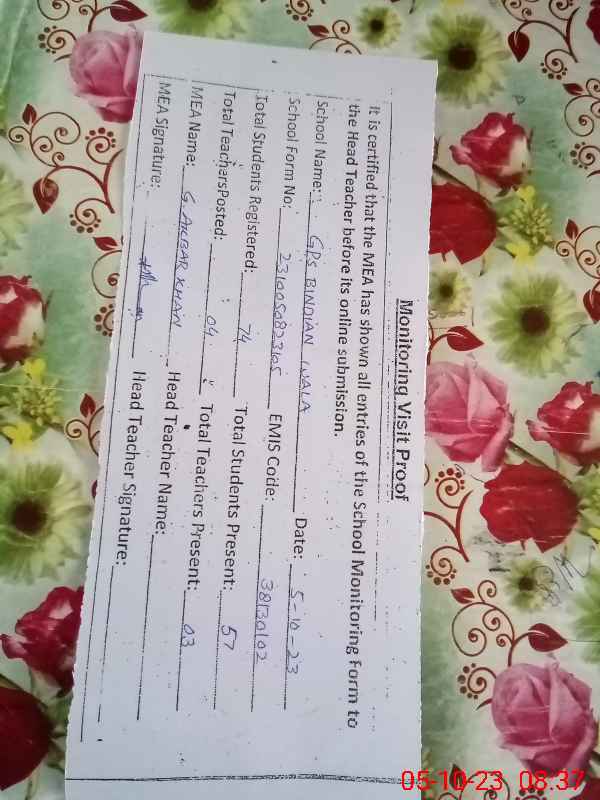 Monitoring Visit Proof
It is certified that the MEA has shown all entries of the School Monitoring Form to
the Head Teacher before its online submission.
School Name: GPS BINDIAN WALA Date: 5-10-23
School Form No: EMIS Code: 38130102
Total Students Registered: 74 Total Students Present: 57
Total TeachersPosted: 04 Total Teachers Present: 03
MEA Name: G. AKBAR KHAN Head Teacher Name:
MEA Signature: Head Teacher Signature:
05-10-23 08:37